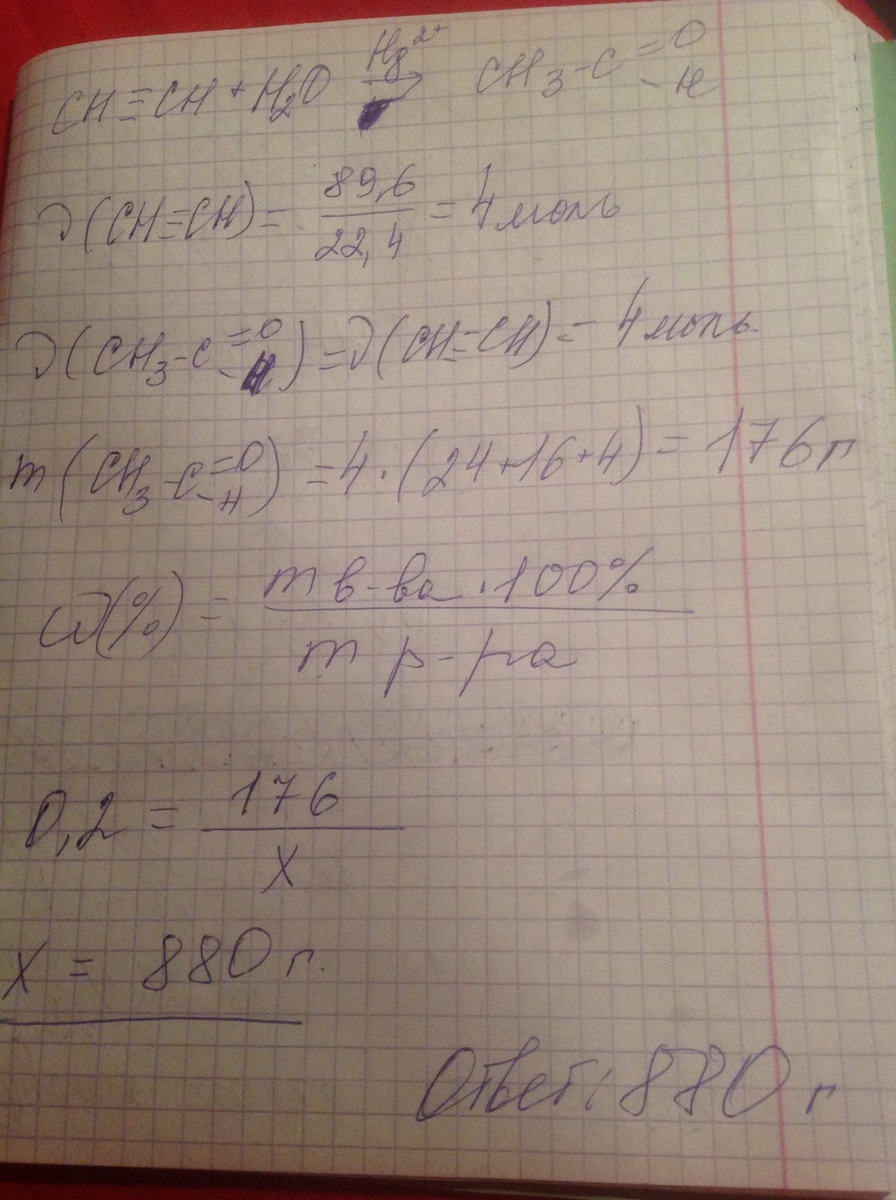 CH≡CH + H₂O →Hg²⁺ CH₃-C=O-H
ν(CH≡CH) = 89,6/22,4 = 4 моль
ν(CH₃-C=O-H) = ν(CH≡CH) = 4 моль
m(CH₃-C=O-H) = 4·(24+16+4) = 176 г
ω(%) = m в-ва·100%/m р-ра
0,2 = 176/x
x = 880 г.
Ответ: 880 г